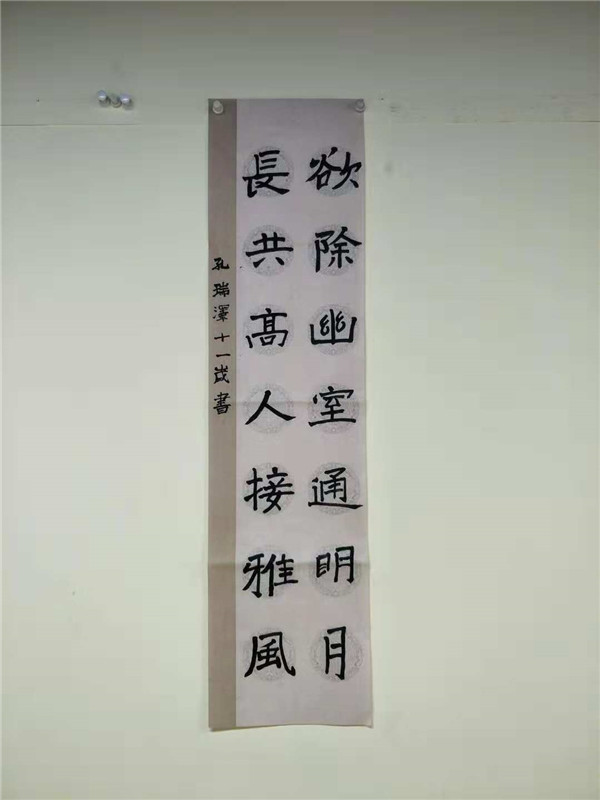 欲除幽室通明月
長共高人接雅風
孔瑞澤十一歲書